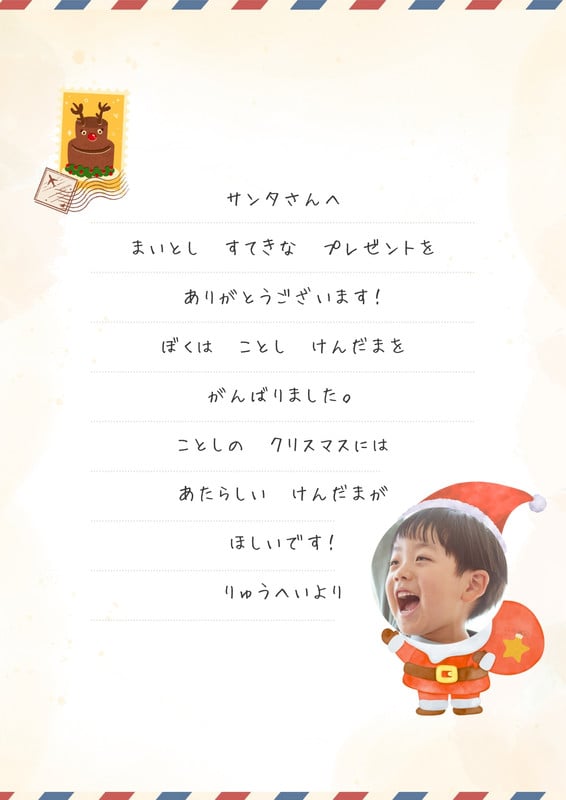 サンタさんへ
まいとし　すてきな　プレゼントを
ありがとうございます!
ぼくは　ことし　けんだまを
がんばりました。
ことしの　クリスマスには
あたらしい　けんだまが
ほしいです!
りゅうへいより